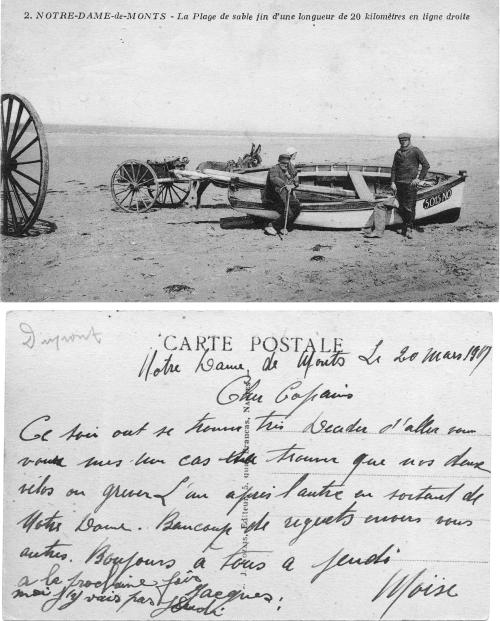 2. NOTRE-DAME-de-MONTS - La Plage de sable fin d'une longueur de 20 kilomètres en ligne droite
5013 NO
Dupont
CARTE POSTALE
Notre Dame de Monts Le 20 mars 19
Cher Copains
Ce soir ont se trouve très Decider d'aller
vous mes un cas trouver que nos deux
vélos on grever L'un après l'autre en sortant de
Notre Dame. Baucoup de regrets envers vous
autres. Bonjours à tous a Jeudi
Moise
a la prochaine fois
moi j'y vais pas Jeudi
Jacques